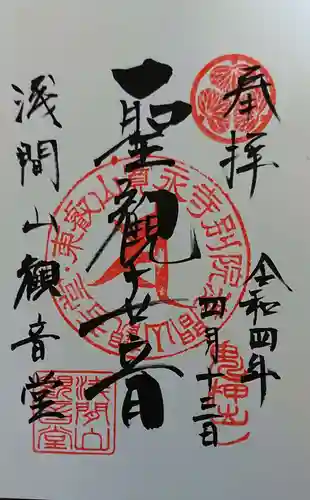 奉拝
令和四年
四月十三日
聖観世音
浅間山観音堂
東叡山寛永寺別院
浅間山
観音堂